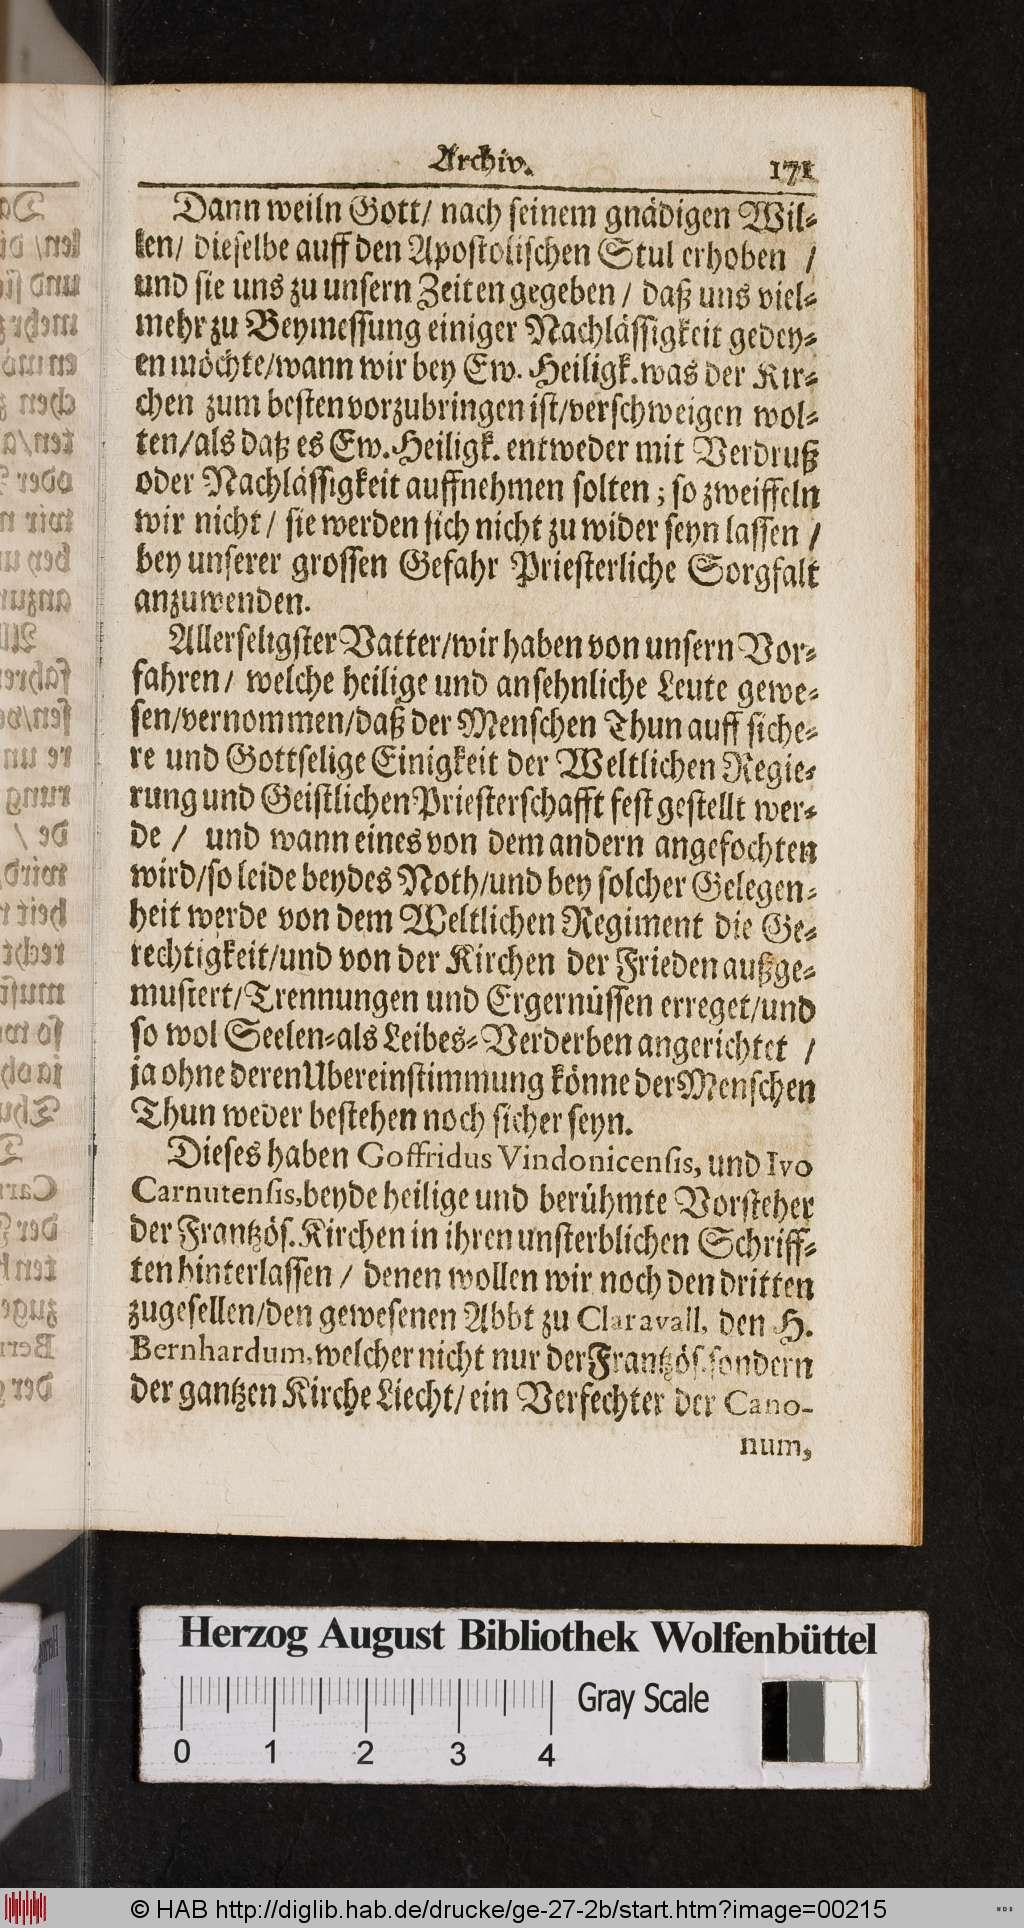 Archiv. 171
Dann weiln Gott/ nach seinem gnädigen Wil-
len/ dieselbe auff den Apostolischen Stul erhoben /
und sie uns zu unsern Zeiten gegeben / daß uns viel-
mehr zu Beymessung einiger Nachlässigkeit gedey-
en möchte/wann wir bey Ew. Heiligk. was der Kir-
chen zum besten vorzubringen ist/verschweigen wol-
ten/als daß es Ew. Heiligk. entweder mit Verdruß
oder Nachlässigkeit auffnehmen solten; so zweiffeln
wir nicht/ sie werden sich nicht zu wider seyn lassen /
bey unserer grossen Gefahr Priesterliche Sorgfalt
anzuwenden.
Allerseligster Vatter/wir haben von unsern Vor-
fahren/ welche heilige und ansehnliche Leute gewe-
sen/vernommen/daß der Menschen Thun auff siche-
re und Gottselige Einigkeit der Weltlichen Regie-
rung und Geistlichen Priesterschafft fest gestellt wer-
de / und wann eines von dem andern angefochten
wird/so leide beydes Noth/und bey solcher Gelegen-
heit werde von dem Weltlichen Regiment die Ge-
rechtigkeit/und von der Kirchen der Frieden außge-
mustert/Trennungen und Ergernüssen erreget/und
so wol Seelen-als Leibes-Verderben angerichtet /
ja ohne deren Ubereinstimmung könne der Menschen
Thun weder bestehen noch sicher seyn.
Dieses haben Goffridus Vindonicensis, und Ivo
Carnutensis, beyde heilige und berühmte Vorsteher
der Frantzös. Kirchen in ihren unsterblichen Schriff-
ten hinterlassen / denen wollen wir noch den dritten
zugesellen/den gewesenen Abbt zu Claravall, den H.
Bernhardum, welcher nicht nur der Frantzös. sondern
der gantzen Kirche Liecht/ ein Verfechter der Cano-
num,
Herzog August Bibliothek Wolfenbüttel
Gray Scale
0 1 2 3 4
© HAB http://diglib.hab.de/drucke/ge-27-2b/start.htm?image=00215